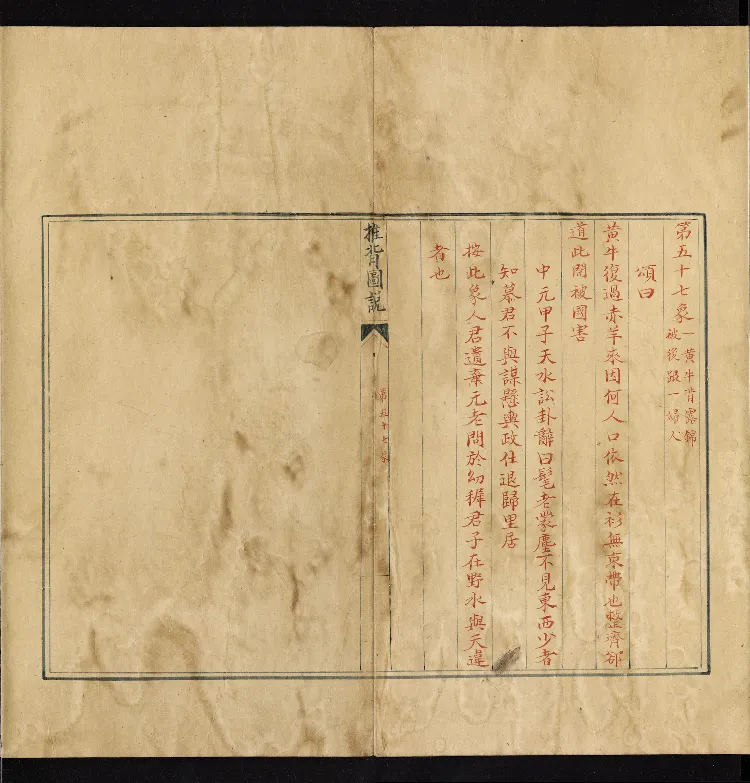 第五十七象
一黄牛背露錦
被後跟一婦人
頌曰
黄牛復過赤羊來因何人口依然在衫無束帶也整濟却
道此間被國害
中元甲子天水訟卦辭曰髦老蒙塵不見東西少者
知慕君不與謀懸輿政仕退歸里居
按此象人君遺棄元老問於幼穉君子在野水與天違
者也
推背圖説
第五十七象